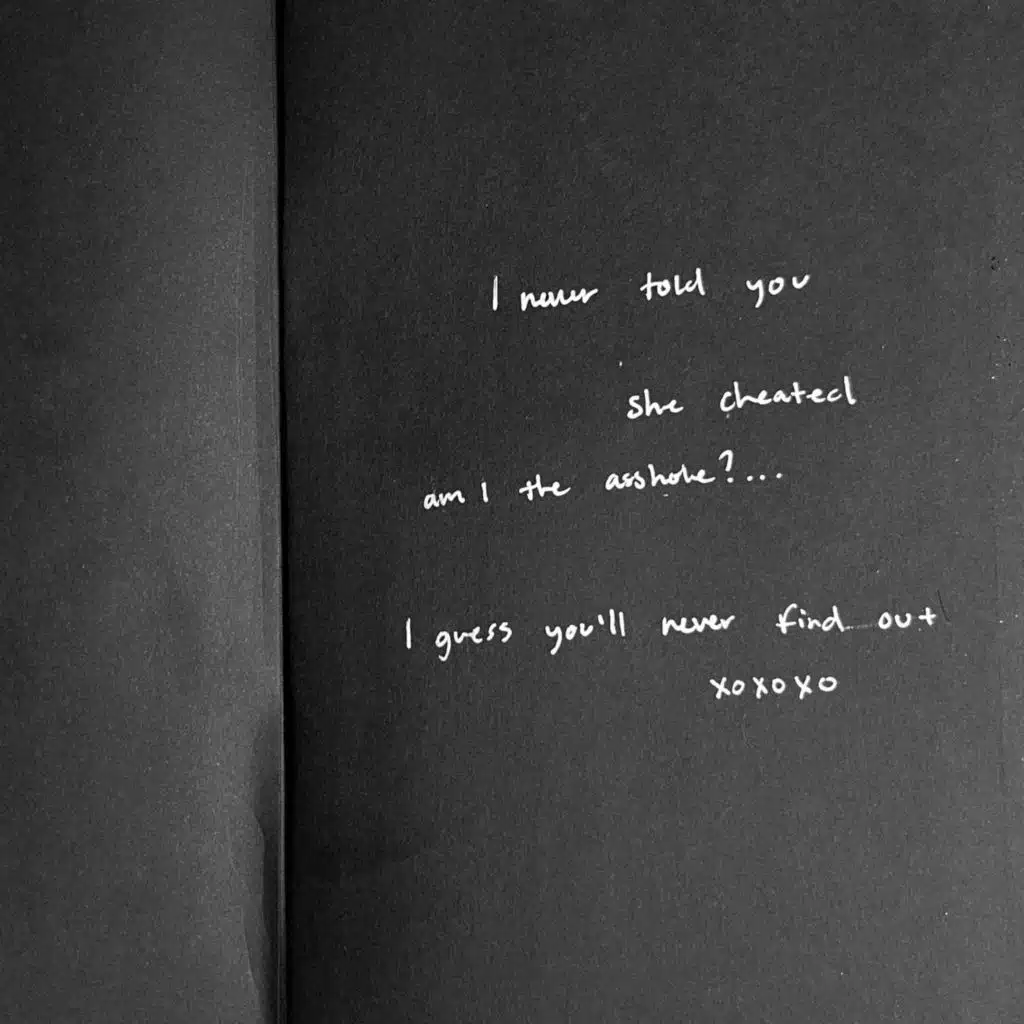 I never told you
she cheated
am I the asshole?...
I guess you'll never find out
xoxoxo